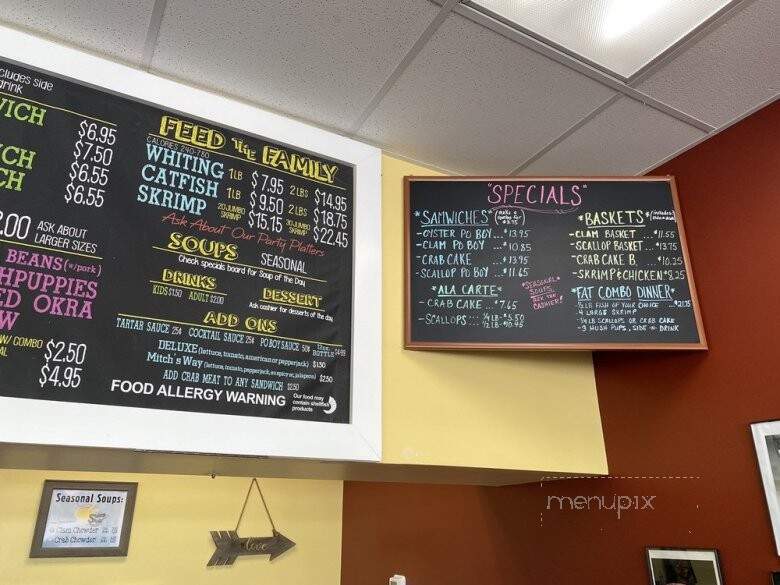 cludes side
drink
ICH
$6.95
$7.50
CH $6.55
CH $6.55
.00 ASK ABOUT
LARGER SIZES
BEANS (w/pork)
HPUPPIES
ED OKRA
W
W/ COMBO $2.50
AL $4.95
FEED THE FAMILY
CALORIES 240-780
WHITING 1LB $7.95 2LBS $14.95
CATFISH 1LB $9.50 2LBS $18.75
SKRIMP 20 JUMBO SKRIMP $15.15 30 JUMBO SKRIMP $22.45
Ask About Our Party Platters
SOUPS SEASONAL
Check specials board for Soup of the Day
DRINKS
KIDS $1.50 ADULT $2.00
DESSERT
Ask cashier for desserts of the day
ADD ONS
TARTAR SAUCE 25¢ COCKTAIL SAUCE 25¢ PO BOY SAUCE 50¢ BOTTLE $4.99
DELUXE (lettuce, tomato, american or pepperjack) $1.50
Mitch's Way (lettuce, tomato, pepperjack, as spicy or, jalapeno) $2.50
ADD CRAB MEAT TO ANY SANDWICH $2.50
FOOD ALLERGY WARNING Our food may
contain shellfish
products
"SPECIALS"
*SAMWICHES*
-OYSTER PO BOY ...$13.95
-CLAM PO BOY ...$10.85
-CRAB CAKE ...$13.95
-SCALLOP PO BOY ...$11.65
*ALA CARTE*
-CRAB CAKE ...$7.65
-SCALLOPS ... ¼ LB-$5.50
½ LB-$10.95
*SEASONAL
SOUPS
ASK THE
CASHIER!
*BASKETS*
-CLAM BASKET ...$11.55
-SCALLOP BASKET ...$13.75
-CRAB CAKE B. ...$10.25
-SKRIMP & CHICKEN $8.25
*FAT COMBO DINNER* $21.75
-½ LB FISH OF YOUR CHOICE
-4 LARGE SKRIMP
-¼ LB SCALLOPS OR CRAB CAKE
-3 HUSH PUPS, SIDE -N- DRINK
Seasonal Soups:
Clam Chowder
Crab Chowder
love
menupix